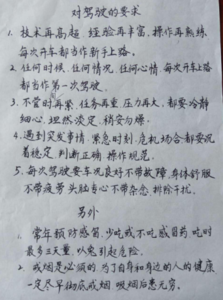 对驾驶的要求
1. 技术再高超 经验再丰富,操作再熟练
每次开车都当作新手上路。
2. 任何时候,任何情况,任何心情,每次开车上路
都当作第一次驾驶。
3. 不管时再紧、任务再重、压力再大,都要冷静
细心,坦然淡定,稍安勿燥。
4. 遇到突发事情,紧急时刻,危机场合都要沉
着稳定,判断正确,操作规范。
5. 每次驾驶要车况良好不带故障,身体舒服
不带疲劳,头脑专心不带杂念,排除干扰。
另外
1. 常年预防感冒,少吃或不吃感冒药,吃时
最多三天量,以免引起危险。
2. 戒烟是必须的,为了自身和身边的人的健康
一定尽早彻底戒烟,吸烟后患无穷。